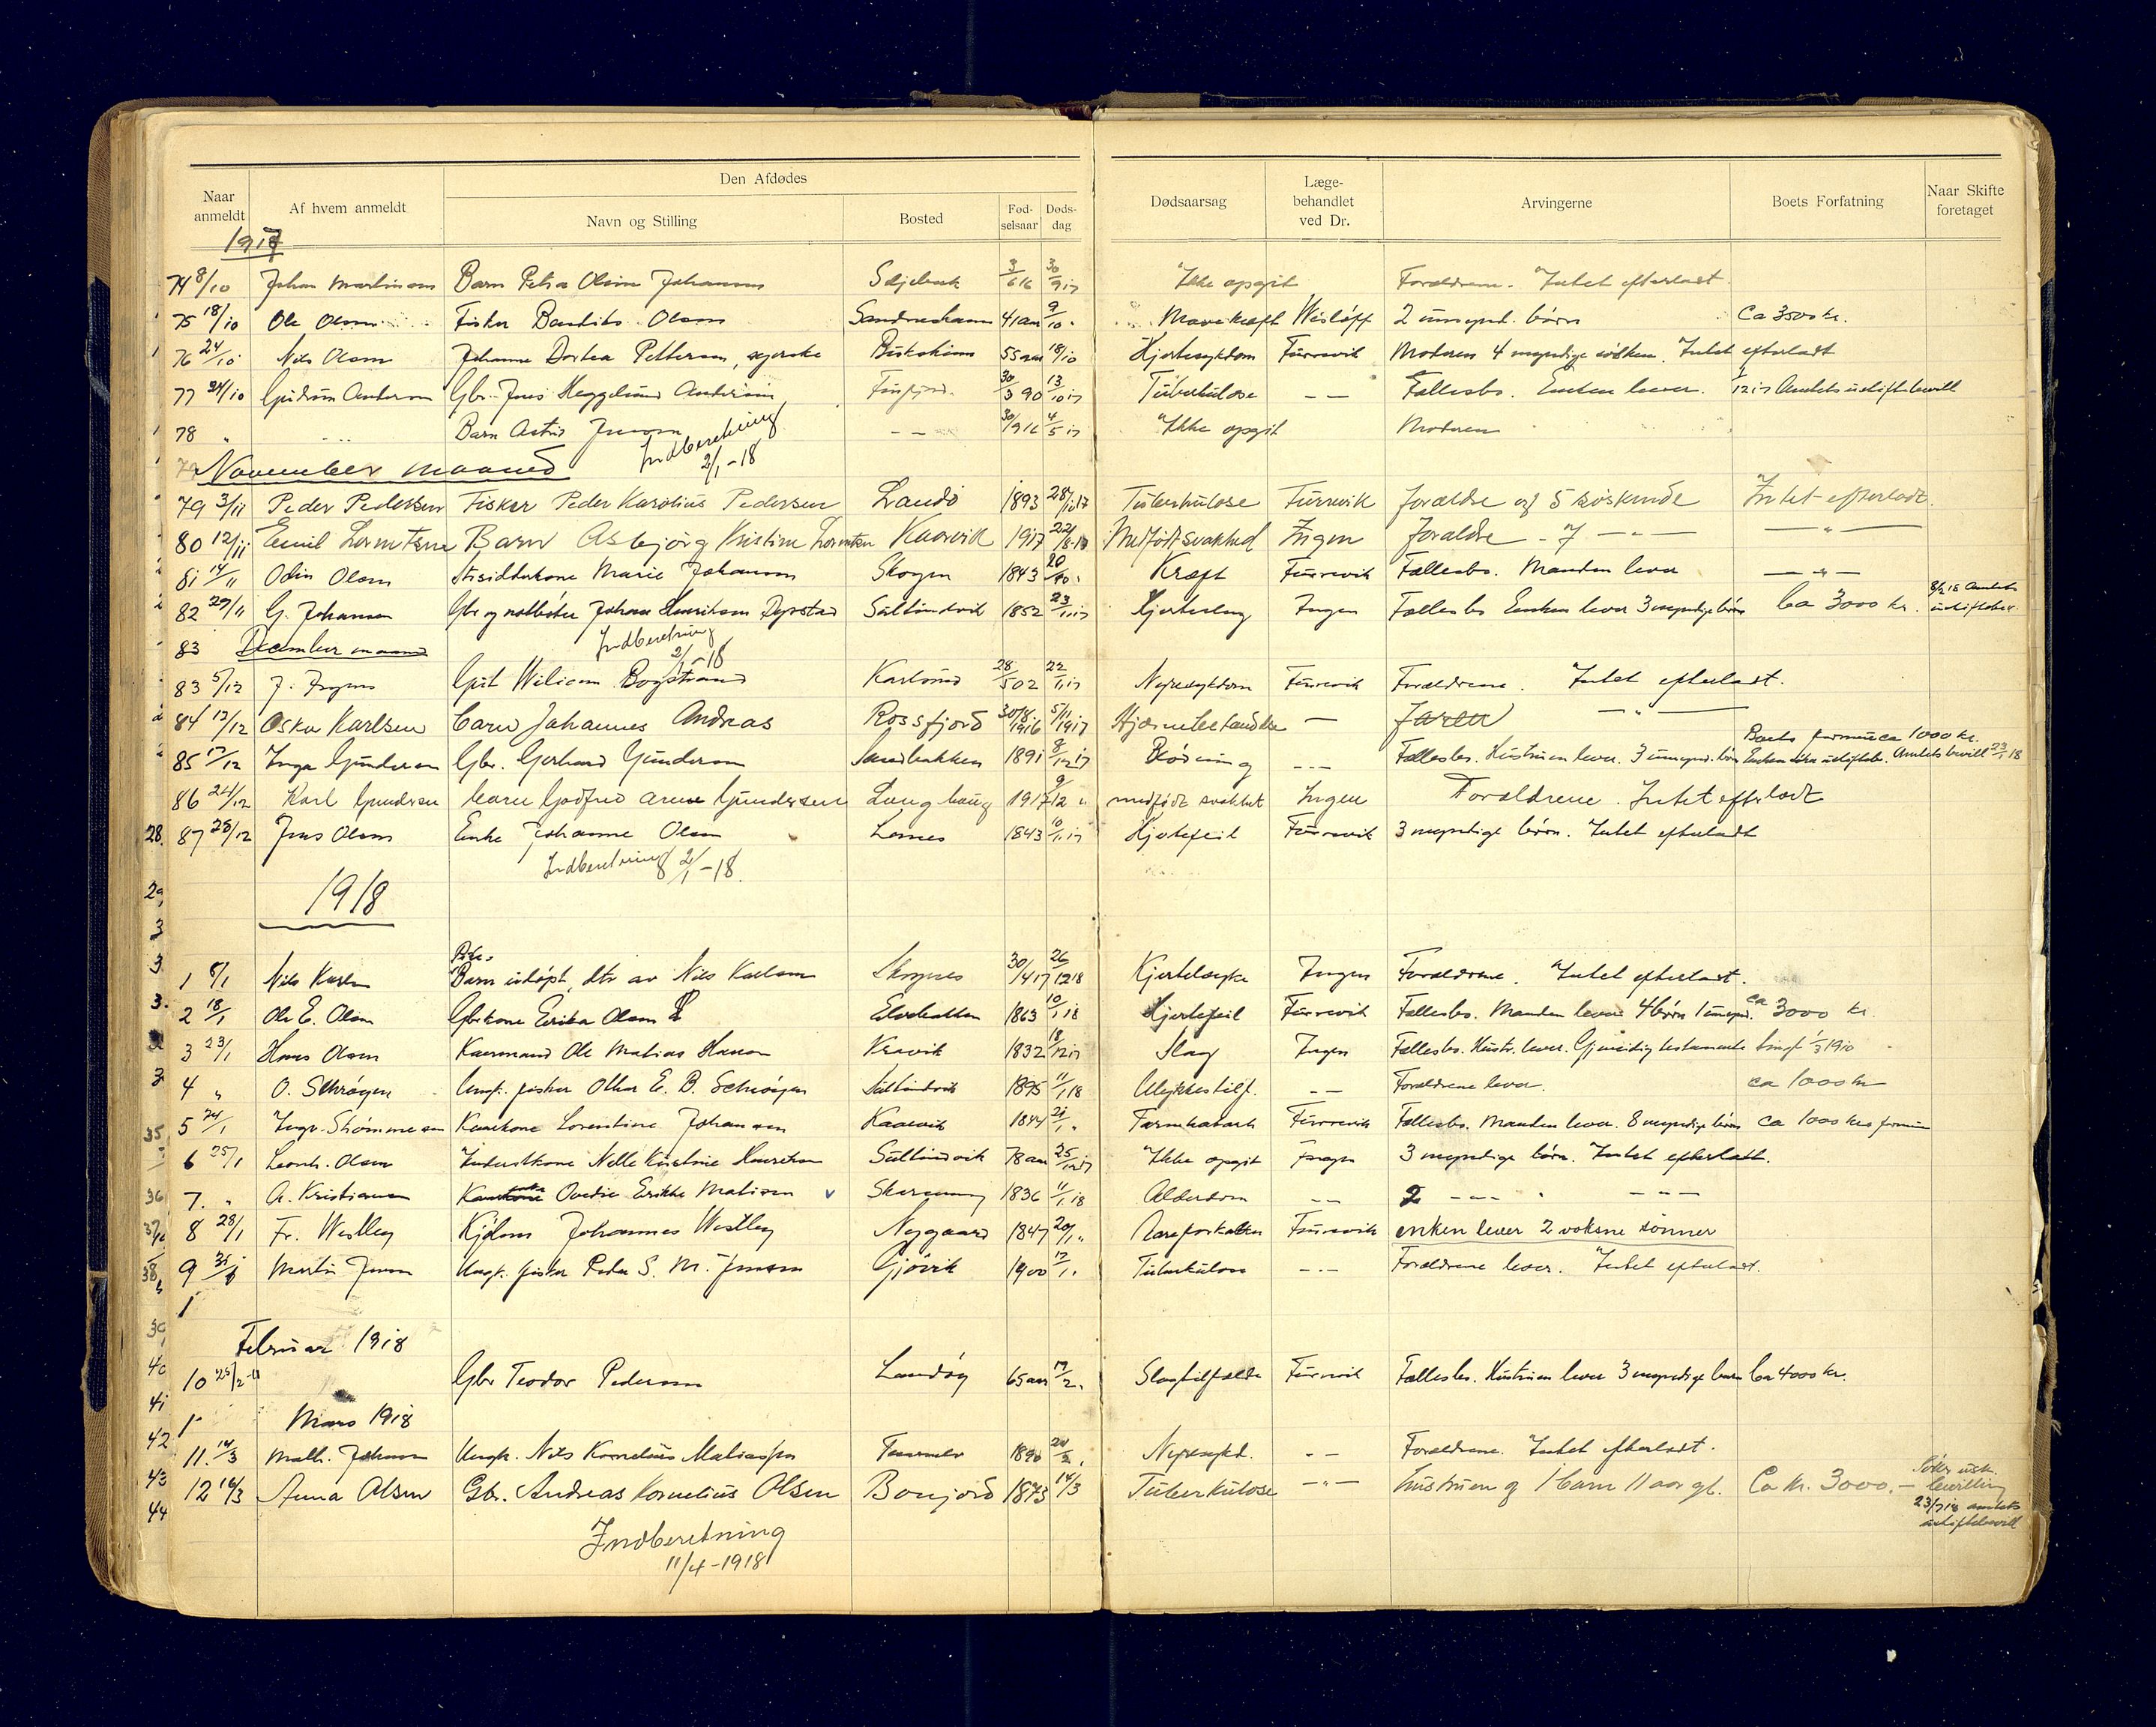 Naar anmeldt | Af hvem anmeldt | Den Afdødes | Navn og Stilling | Bosted | Fødselsaar | Dødsdag | Dødsaarsag | Lægebehandlet ved Dr. | Arvingerne | Boets Forfatning | Naar Skifte foretaget
1917
74 8/10 Barn Petra Johansen 3/6 16 30/9 17 Ikke opgit Forældrene. Intet efterlatt.
75 18/10 Ole Olsen Fisker Olsen 41 aar 9/10 Mavekræft 2 umynd. børn Ca 3500 kr.
76 24/10 Nils Olsen Johanne Dortea Pettersen, 55 aar 18/10 Hjertesykdom Furrevik Moderen 4 myndige søsken. Intet efterladt
77 24/10 Gudrun Andersen Gbr. Jens Heggelund Andersen Finfjord 30/3 90 13/10 17 Tuberkulose – – Fællesbo. Enken lever.
78 " Barn Astrid Jensen – – 30/9 16 4/5 17 Ikke opgit Moderen
Indberetning 2/1-18
November maaned
79 3/11 Peder Pedersen Fisker Peder Karolius Pedersen Landø 1893 28/10 17 Tuberkulose Furrevik forældre og 5 søskende Intet efterladt
80 12/11 Emil Lorentsen Barn Asbjørg Kristine Lorentsen Kaarvik 1917 22/8-17 Medfødt svakhed Ingen Forældre – " –
81 14/11 Odin Olsen Marie Johansen Skogen 1843 20/10 Kræft Furrevik Fællesbo. Manden lever – " –
82 29/11 G. Johansen Gbr og Johan Henriksen Dyrstad Sultindvik 1852 23/11 17 Hjerteslag Ingen Fællesbo Enken lever 3 myndige børn Ca 3000 kr.
Indberetning 2/1-18
83 December maaned
83 5/12 Gut Wiliam Bogstrand Karlsund 28/5 02 22/11 17 Nyresykdom Furrevik Forældrene. Intet efterlatt.
84 13/12 Oskar Karlsen barn Johannes Andreas Rossfjord 30/8 1916 5/11 1917 – – " –
Boets formue ca 1000 kr.
85 17/12 Inga Gundersen Gbr. Gerhard Gundersen Sandbakken 1891 8/12 17 Blødning – – Fællesbo. Hustruen lever. 3 umynd. børn
86 24/12 Karl Gundersen barn Godfred Arne Gundersen Langhaug 1917 9/12 " medfødt svakhet Ingen Forældrene. Intet efterladt
28. 87 28/12 Jens Olsen Enke Johanne Olsen Lenes 1843 10/11 17 Hjertefeil Furrevik 3 myndige børn. Intet efterladt
Indberetning 2/1-18.
1918
1 8/1 Nils Karlsen Barn udøpt, dtr av Nils Karlsen Skognes 30/4 17 26/12 18 Kjertelsyke Ingen Forældrene. Intet efterlatt.
2 18/1 Ole E. Olsen Gbrkone Erika Olsen 1863 10/1 18 Hjertefeil Furrevik Fællesbo. Manden lever 4 børn 1 umynd. ca 3000 kr.
3 23/1 Hans Olsen Kaarmand Ole Matias Hansen Kravik 1832 18/12 17 Slag Ingen Fællesbo. Hustr. lever. Gjensidig testamente 1/3 1910
4 " O. Schrøgen Ungk. fisker E. B. Schrøgen Sultindvik 1895 11/1 18 Ulykkestilf. – – Forældrene lever. ca 1000 kr
5 24/1 Kaarkone Lorentine Johansen Kaarvik 1844 21/1 " Tarmkatarh Furrevik Fællesbo. Manden lever. 8 myndige børn ca 1000 kr formue
6 25/1 Leonh. Olsen Kristine Henriksen Sultindvik 78 aar 25/12 17 Ikke opgit Ingen 3 myndige børn. Intet efterlatt.
7. " A. Kristiansen Ovedie Erikke Matisen 1836 11/1 18 Alderdom – – 2 – – – – " –
8 28/1 Fr. Westley Johannes Westley Nygaard 1847 20/1 " Aareforkalkn Furrevik enken lever 2 voksne sønner
9 31/1 Martin Jensen Ungk. fisker Peder S. M. Jensen Gjøvik 1900 17/1 " Tuberkulose – – Forældrene lever. Intet efterladt.
Februar 1918
10 25/2 Gbr Teodor Pedersen Landøy 65 aar 17/2 " Slagtilfælde Furrevik Fællesbo. Hustruen lever 3 myndige børn Ca 4000 kr.
Mars 1918
11. 14/3 Math. Johansen Ungk. Nils Kornelius Mathiassen 1890 Nyresykd. – – Forældrene. Intet efterladt.
12 16/3 Anna Olsen Gbr. Andreas Kornelius Olsen Bonjord 1873 14/3 Tuberkulose – " – hustruen og 1 barn 11 aar gl. Ca Kr. 3000.– bevilling
23/7 18 amtets uskiftebevill
Indberetning
11/4-1918